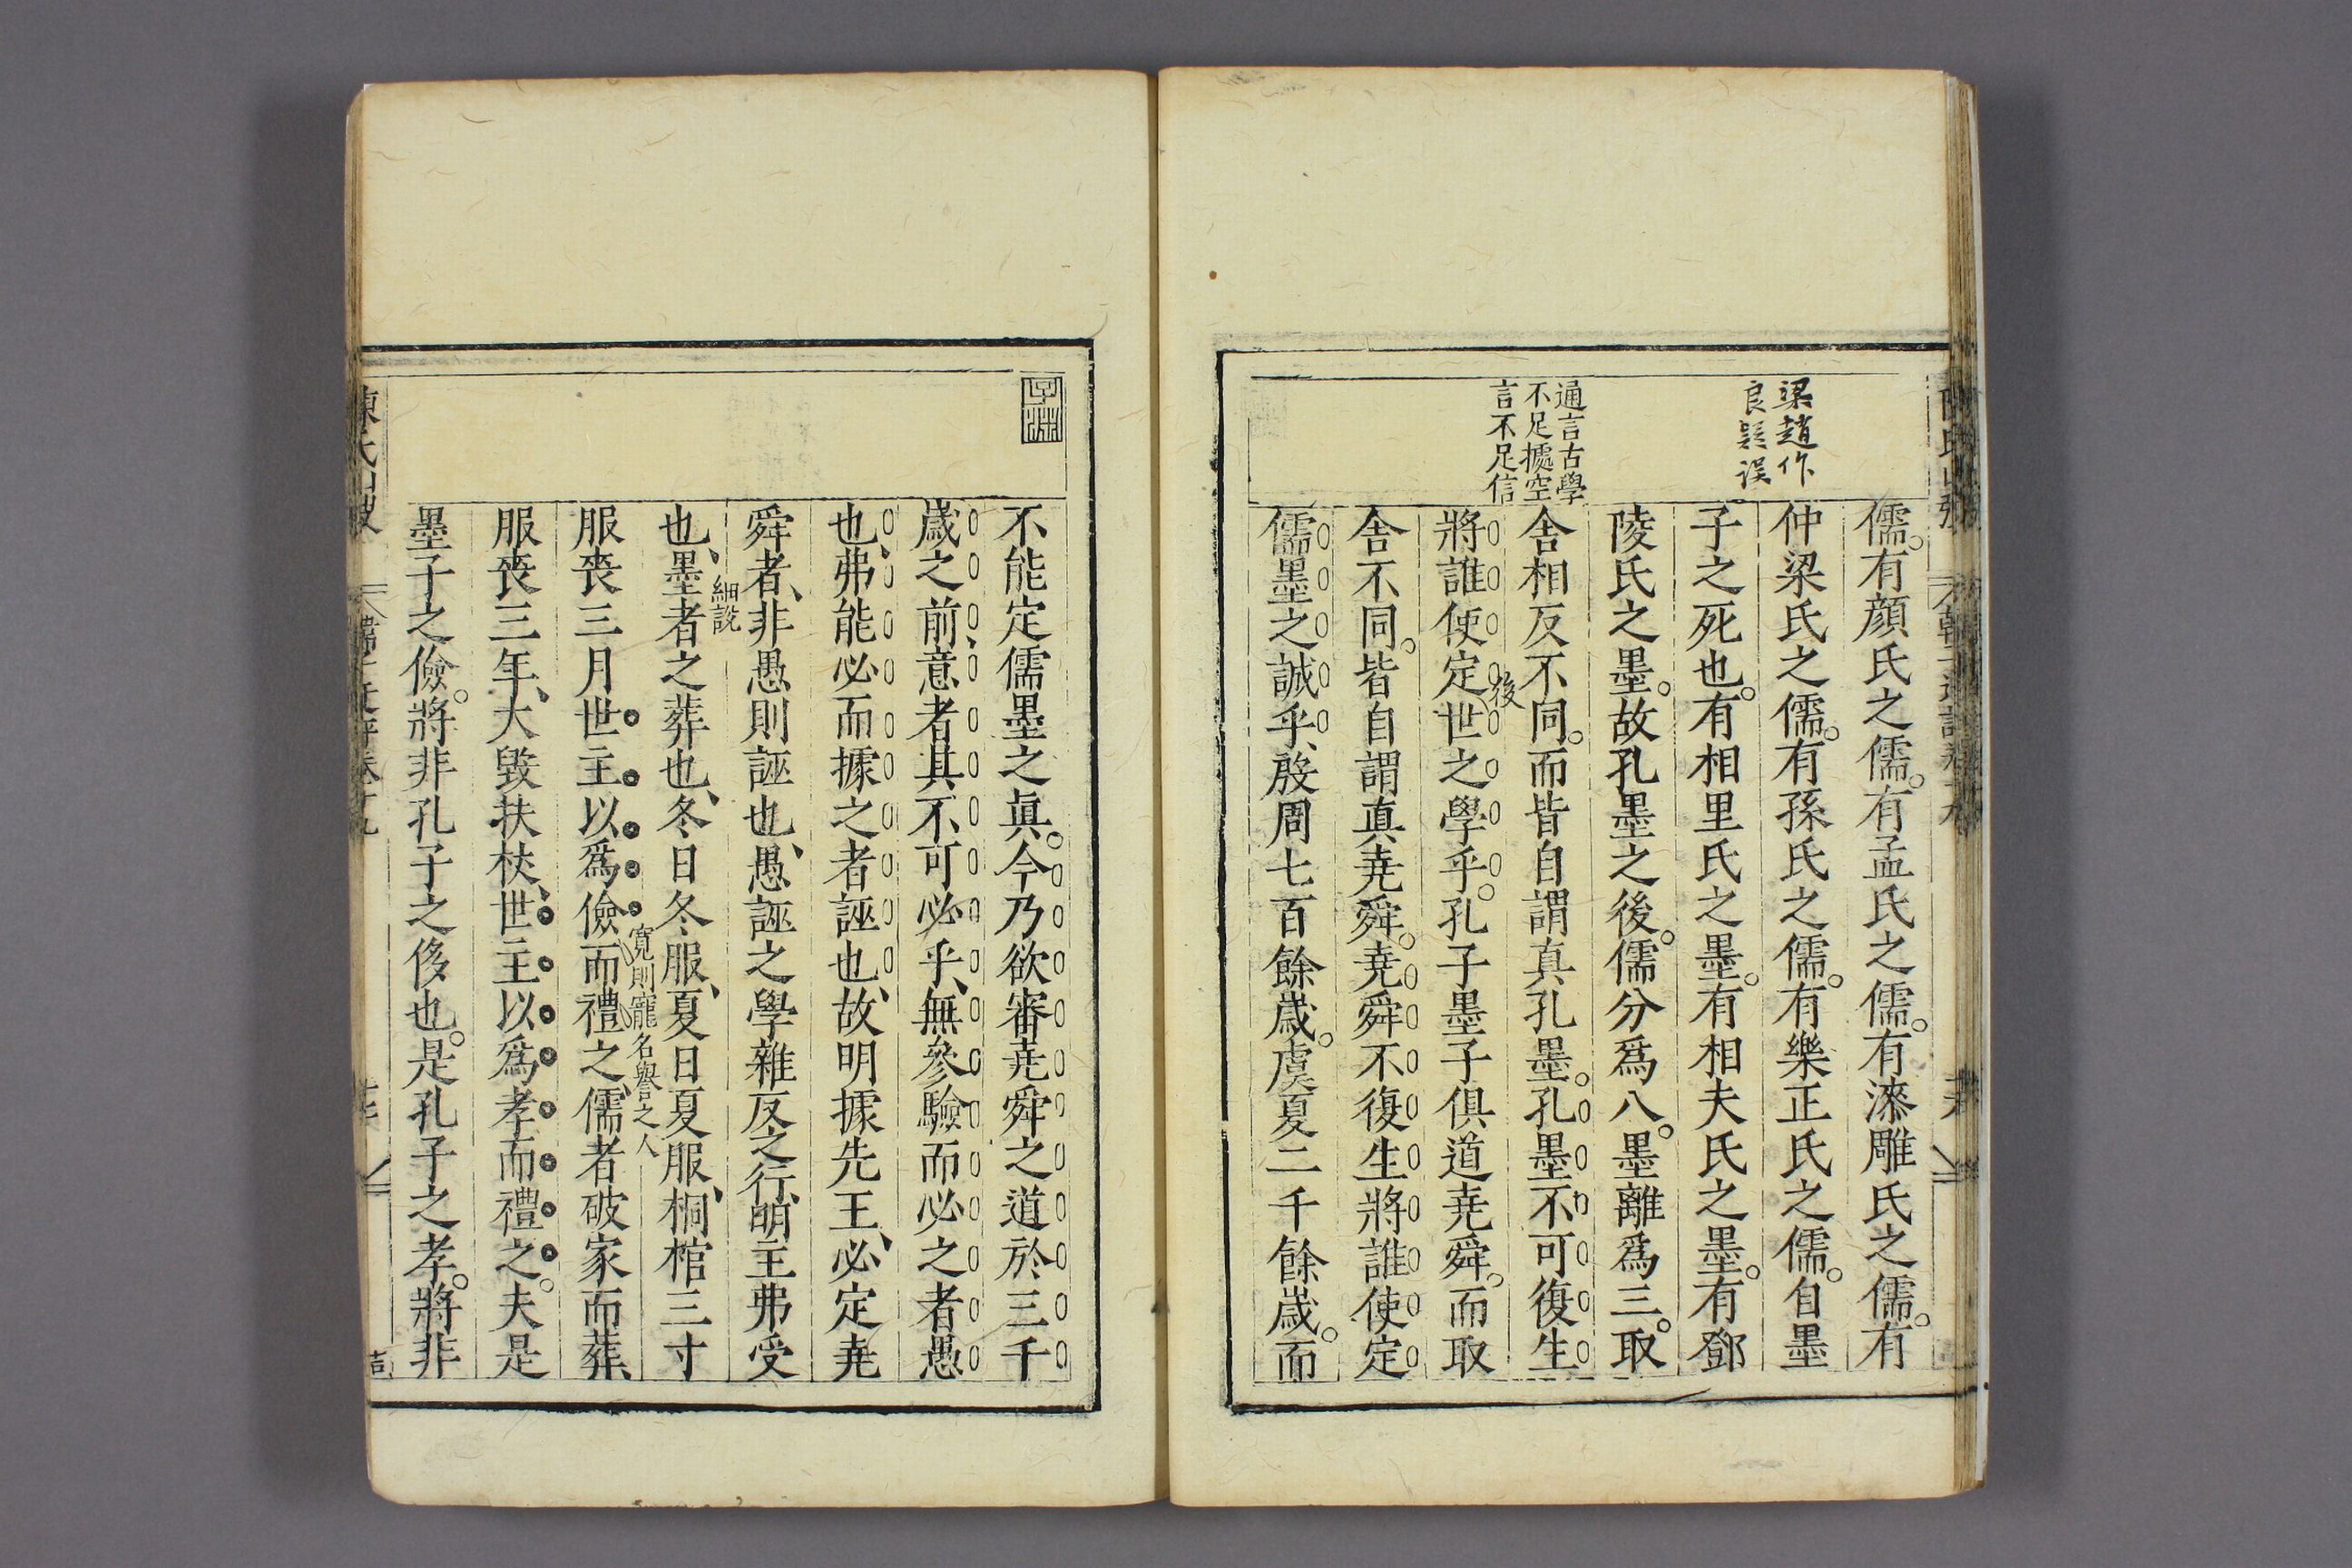 梁趙作
良疑误
通言古學
不足據空
言不足信
儒。有顏氏之儒。有孟氏之儒。有漆雕氏之儒。有
仲梁氏之儒。有孫氏之儒。有樂正氏之儒。自墨
子之死也。有相里氏之墨。有相夫氏之墨。有鄧
陵氏之墨。故孔墨之後。儒分爲八。墨離爲三。取
舍相反不同。而皆自謂真孔墨。孔墨不可復生
後
將誰使定世之學乎。孔子墨子俱道堯舜。而取
舍不同。皆自謂真堯舜。堯舜不復生將誰使定
儒墨之誠乎、殷周七百餘歲。虞夏二千餘歲。而
不能定儒墨之真。今乃欲審堯舜之道於三千
歲之前、意者其不可必乎、無參驗而必之者愚
也、弗能必而據之者誣也、故明據先王、必定堯
舜者、非愚則誣也、愚誣之學雜反之行、明主弗受
細說
也、墨者之葬也、冬日冬服、夏日夏服、桐棺三寸
寬則寵名譽之人
服喪三月世主以爲儉而禮之、儒者破家而葬、
服喪三年、大毀扶杖、世主以爲孝而禮之。夫是
墨子之儉。將非孔子之侈也。是孔子之孝。將非